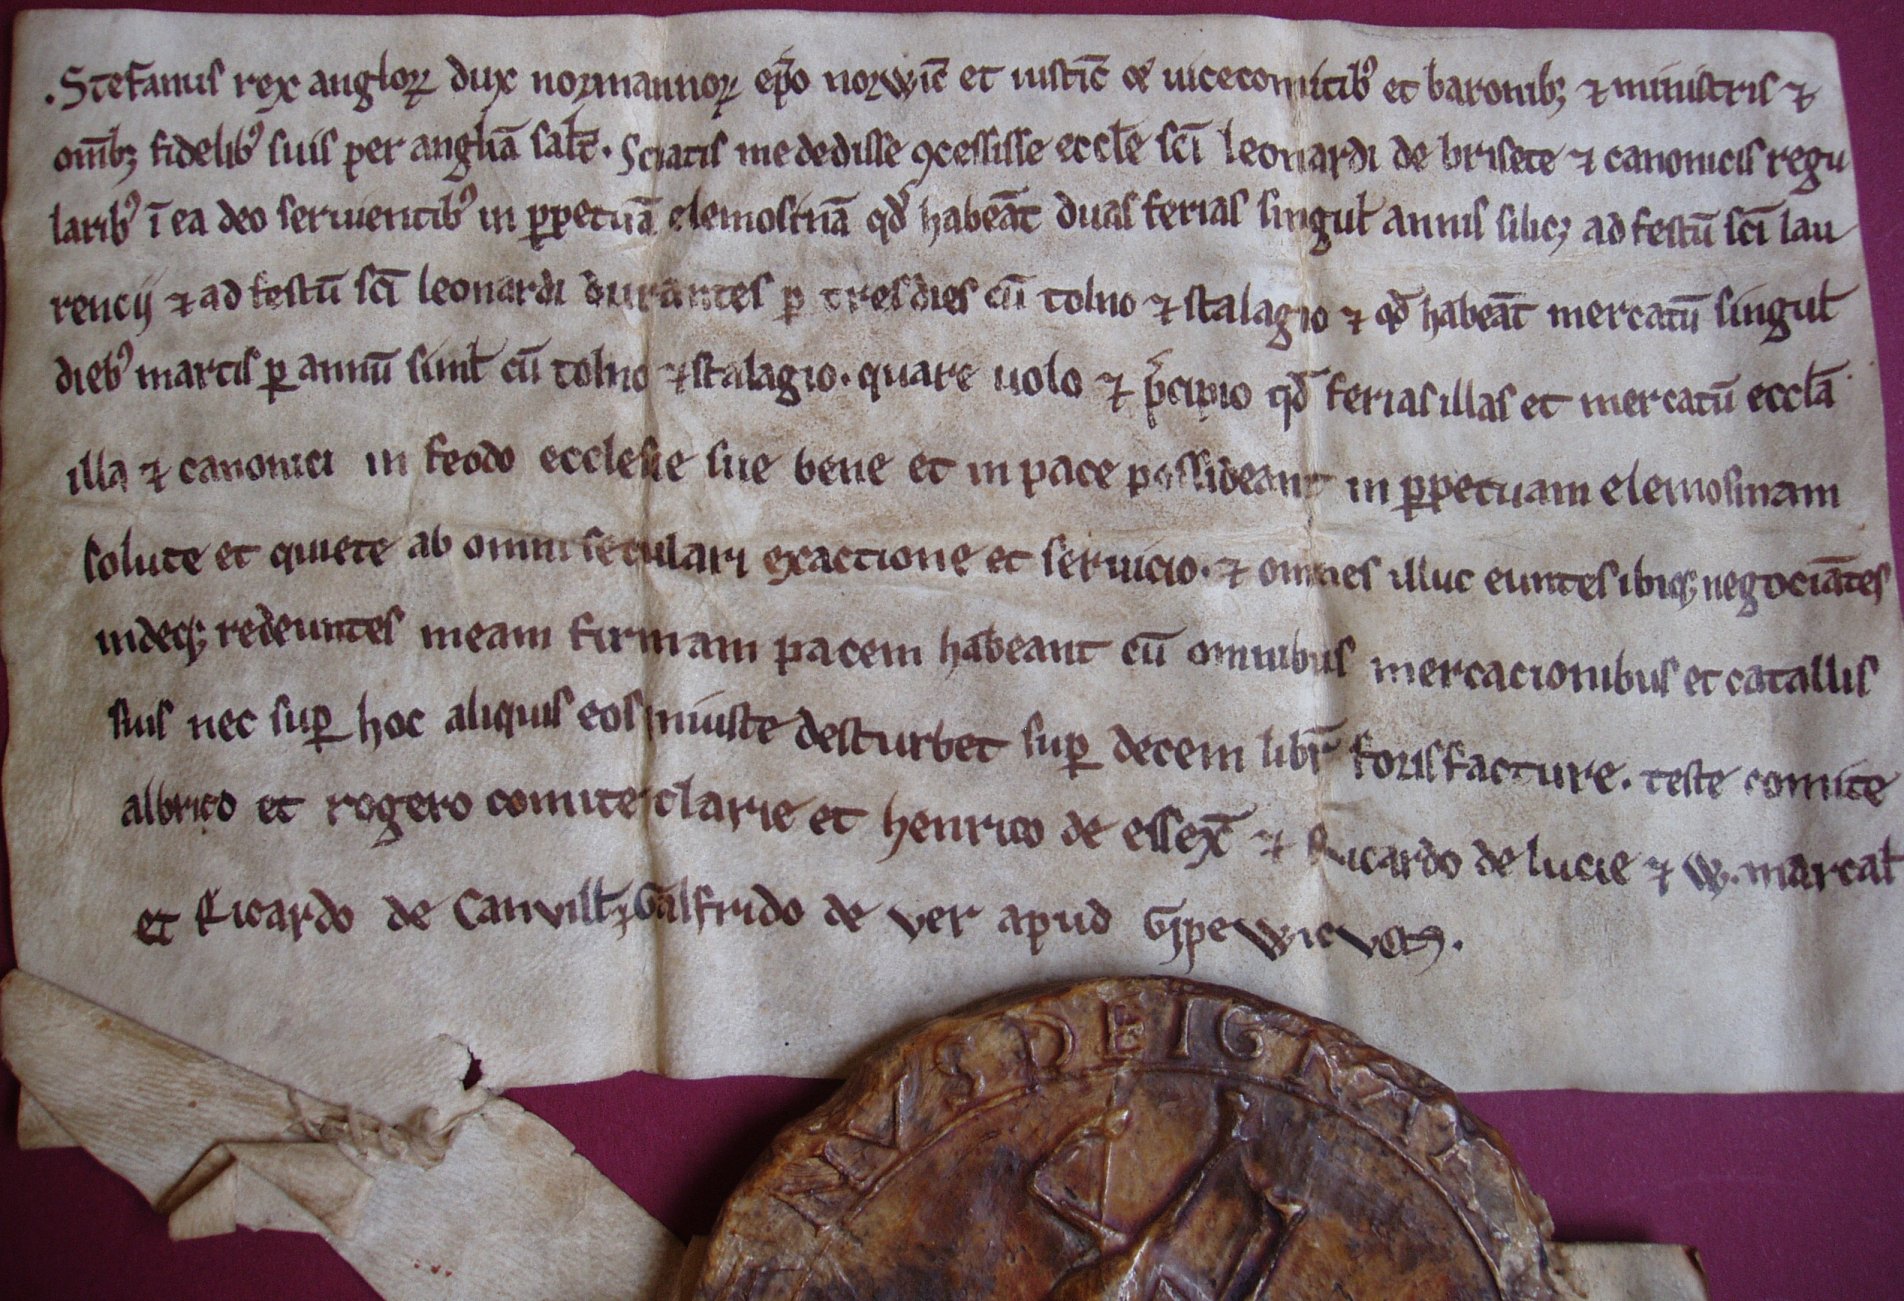 .Stefanus rex angloꝝ dux normannoꝝ ep̄o norwic̄ et iustic̄ & uicecomitib᾽ et baronibꝫ ⁊ ministris ⁊
om̄ibꝫ fidelib᾽ suis per anglīa sal̄t. Sciatis me dedisse ꝯcessisse eccl̄e sc̄i leonardi de brisete ⁊ canonicis regu
larib᾽ ī ea deo seruientib᾽ in ꝑpetuā elemosinā qd̄ habeāt duas ferias singul̄ annis silicꝫ ad festū sc̄i lau
rencij ⁊ ad festū sc̄i leonardi durantes ꝑ tres dies cū tolno ⁊ stalagio ⁊ qd̄ habeāt mercatū singul̄
dieb᾽ martis ꝑ annū simil̄ cū tolno ⁊ stalagio. quare uolo ⁊ p̄cipio qd̄ ferias illas et mercatū eccl̄a
illa ⁊ canonici in feodo ecclesie sue bene et in pace possideant in ꝑpetuam elemosinam
solute et quiete ab omni seculari exactione et seruicio. ⁊ omnes illuc euntes ibiqꝫ negociātes
indeqꝫ redeuntes meam firmam pacem habeant cū omnibus mercacionibus et catallis
suis nec suꝑ hoc aliquis eos iniuste desturbet suꝑ decem libr̄ forisfacture. teste comite
albrico et rogero comite clarie et henrico de essex̄ ⁊ Ricardo de lucie ⁊ W. marcal̄
et Ricardo de Canvill̄ ⁊ Galfrido de ver apud Gipewic
NVS DEI GRATI